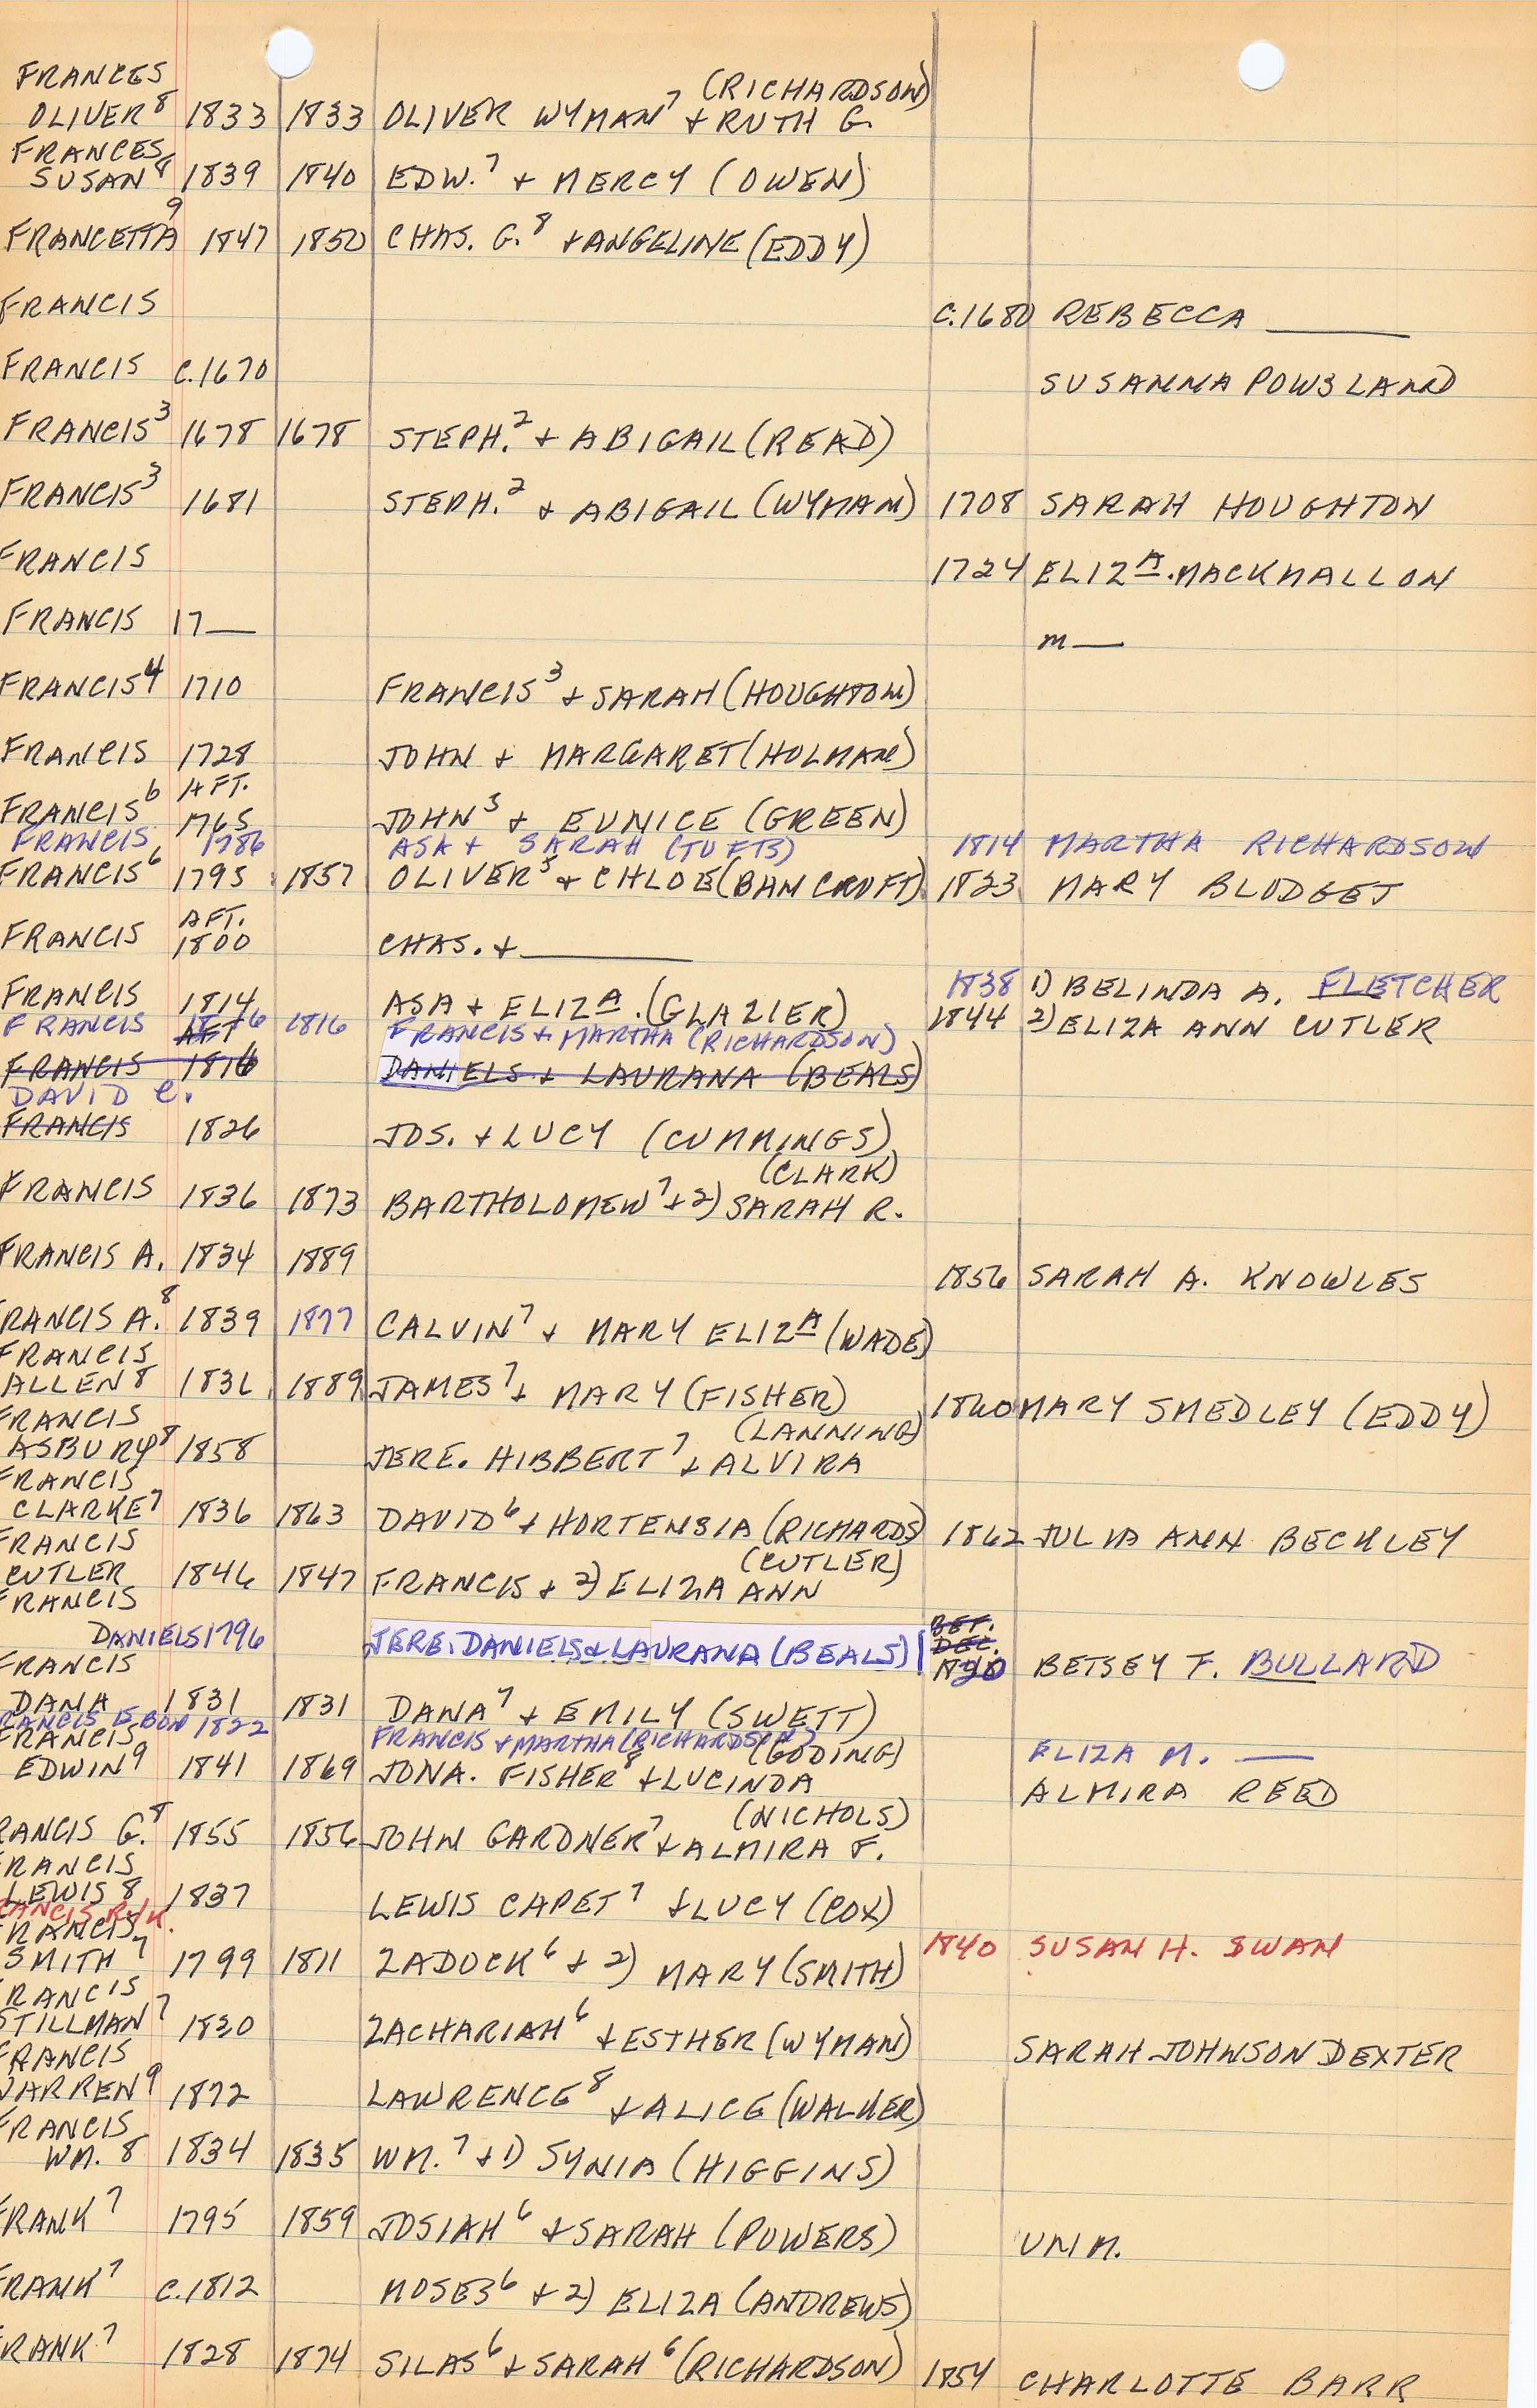 FRANCES (RICHARDSON)
OLIVER⁸ 1833 1833 OLIVER WYMAN⁷ + RUTH G.
FRANCES
SUSAN⁸ 1839 1840 EDW.⁷ + MERCY (OWEN)
FRANCETTA⁹ 1847 1850 CHAS. G.⁸ + ANGELINE (EDDY)
FRANCIS C.1680 REBECCA ____
FRANCIS C.1670 SUSANNA POWSLAND
FRANCIS³ 1678 1678 STEPH.² + ABIGAIL (READ)
FRANCIS³ 1681 STEPH.² + ABIGAIL (WYMAN) 1708 SARAH HOUGHTON
FRANCIS 1724 ELIZᴬ. MACKMALLON
FRANCIS 17__ m__
FRANCIS⁴ 1710 FRANCIS³ + SARAH (HOUGHTON)
FRANCIS 1728 JOHN + MARGARET (HOLMAN)
AFT.
FRANCIS⁶ 1765 JOHN⁵ + EUNICE (GREEN)
FRANCIS 1786 ASA + SARAH (TUFTS) 1814 MARTHA RICHARDSON
FRANCIS⁶ 1795 1857 OLIVER⁵ + CHLOE (BANCROFT) 1823 MARY BLODGET
AFT.
FRANCIS 1800 CHAS. + ____
FRANCIS 1814 ASA + ELIZᴬ. (GLAZIER) 1838 1) BELINDA A. FLETCHER
FRANCIS 1816 1816 FRANCIS + MARTHA (RICHARDSON) 1844 2) ELIZA ANN CUTLER
AFT
FRANCIS 1816 DANIELS + LAURANA (BEALS)
DAVID C.
FRANCIS 1826 JOS. + LUCY (CUMMINGS)
(CLARK)
FRANCIS 1836 1873 BARTHOLOMEW⁷ + 2) SARAH R.
FRANCIS A. 1834 1889 1856 SARAH A. KNOWLES
RANCIS A.⁸ 1839 1877 CALVIN⁷ + MARY ELIZᴬ (WADE)
FRANCIS
ALLEN⁸ 1831 1889 JAMES⁷ + MARY (FISHER) 1860 MARY SMEDLEY (EDDY)
FRANCIS (LANNING)
ASBURY⁸ 1858 JERE. HIBBERT⁷ + ALVIRA
FRANCIS
CLARKE⁷ 1836 1863 DAVID⁶ + HORTENSIA (RICHARDS) 1862 JULIA ANN BECKLEY
FRANCIS (CUTLER)
CUTLER 1846 1847 FRANCIS + 2) ELIZA ANN
FRANCIS BEF. DEC.
DANIELS 1796 JERE. DANIELS + LAURANA (BEALS) BETSEY F. BULLARD
FRANCIS
DANA 1831 1831 DANA⁷ + EMILY (SWETT)
RANCIS EBON 1822 FRANCIS + MARTHA (RICHARDSON) ELIZA M. __
FRANCIS (GODING)
EDWIN⁹ 1841 1869 JONA. FISHER⁸ + LUCINDA ALMIRA REED
(NICHOLS)
RANCIS G.⁸ 1855 1856 JOHN GARDNER⁷ + ALMIRA F.
RANCIS
LEWIS⁸ 1837 LEWIS CAPET⁷ + LUCY (COX)
1840 SUSAN H. SWAN
FRANCIS
SMITH⁷ 1799 1811 ZADOCK⁶ + 2) MARY (SMITH)
RANCIS
STILLMAN⁷ 1830 ZACHARIAH⁶ + ESTHER (WYMAN) SARAH JOHNSON DEXTER
FRANCIS
WARREN⁹ 1872 LAWRENCE⁸ + ALICE (WALKER)
FRANCIS
WM. 8 1834 1835 WM.⁷ + 1) SYNIA (HIGGINS)
FRANK⁷ 1795 1859 JOSIAH⁶ + SARAH (POWERS) UNM.
RANK⁷ C.1812 MOSES⁶ + 2) ELIZA (ANDREWS)
RANK⁷ 1828 1874 SILAS⁶ + SARAH⁶ (RICHARDSON) 1854 CHARLOTTE BARR